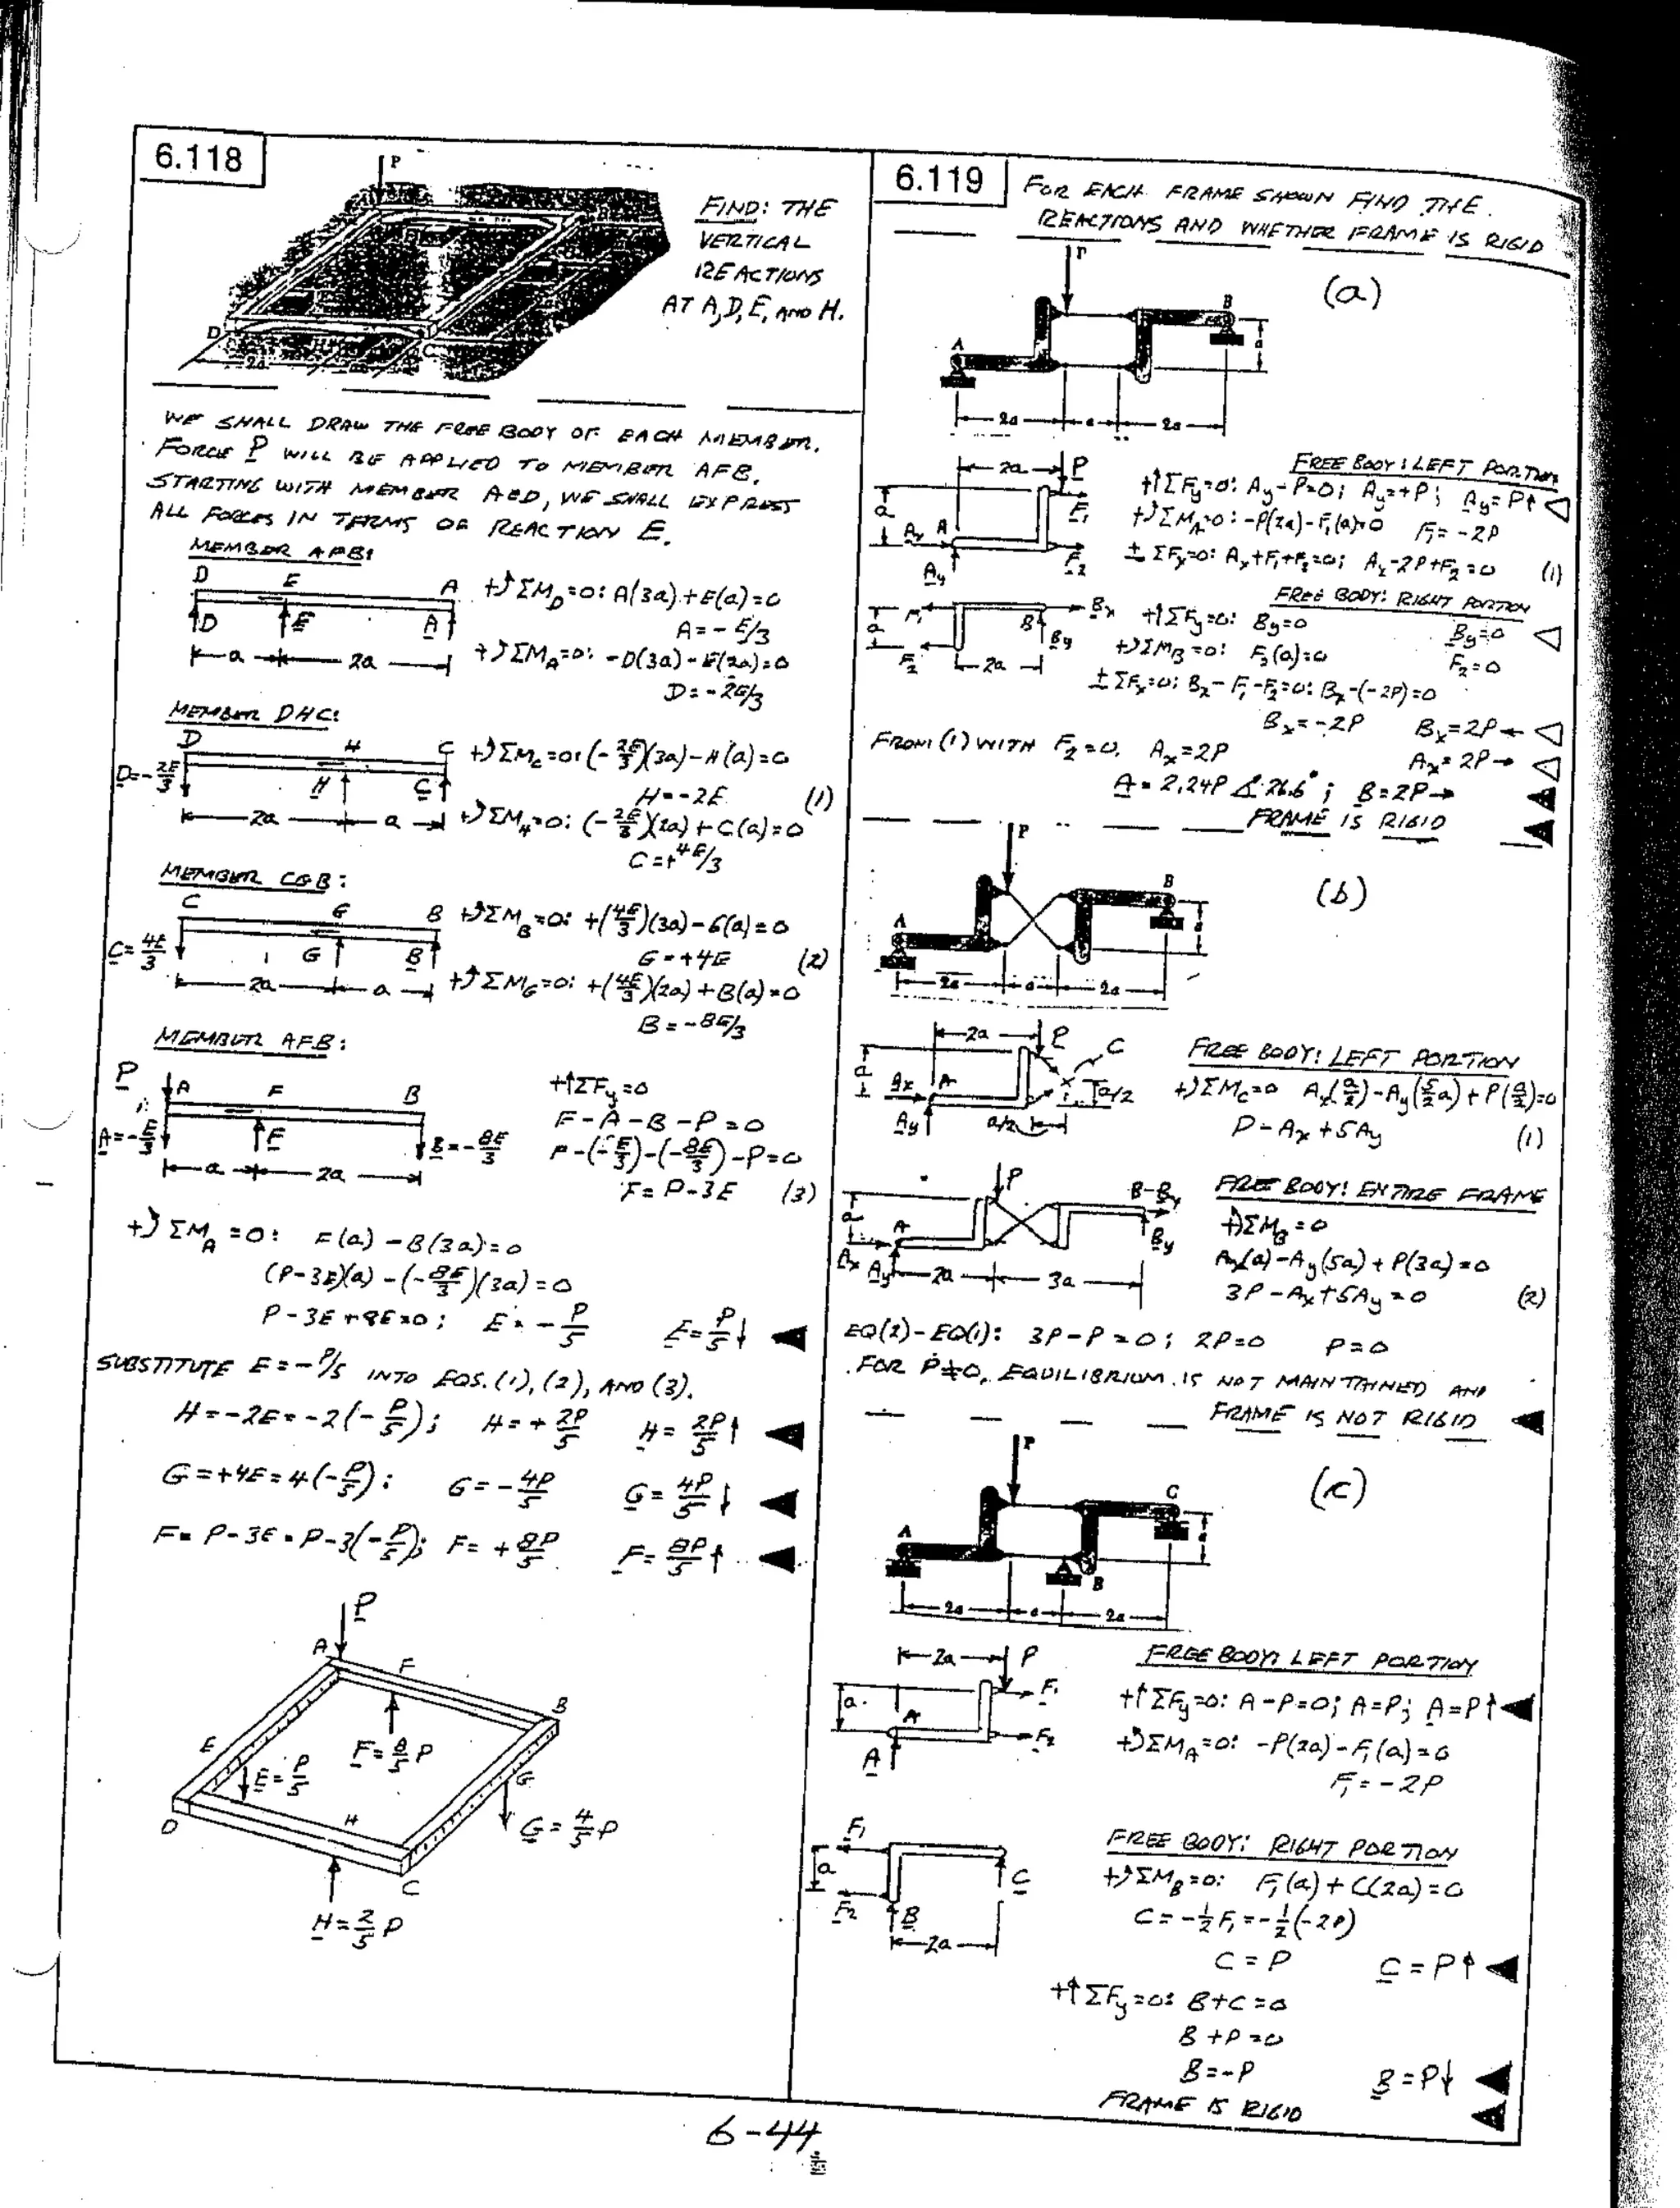 6.118
P
FIND: THE
VERTICAL
REACTIONS
AT A, D, E, AND H.
D
C
2a
WE SHALL DRAW THE FREE BODY OF EACH MEMBER.
FORCE P WILL BE APPLIED TO MEMBER AFB.
STARTING WITH MEMBER AED, WE SHALL EXPRESS
ALL FORCES IN TERMS OF REACTION E.
MEMBER AFB:
D E A
+↺ ΣM_D=0: A(3a)+E(a)=0
A=-E/3
D E A
+↺ ΣM_A=0: -D(3a)-E(2a)=0
a 2a
D=-2E/3
MEMBER DHC:
D H C
+↺ ΣM_C=0: (-2E/3)(3a)-H(a)=0
D=-2E/3 H C
H=-2E (1)
2a a
+↺ ΣM_H=0: (-2E/3)(2a)+C(a)=0
C=+4E/3
MEMBER CGB:
C G B
+↺ ΣM_B=0: +(4E/3)(3a)-G(a)=0
C=4E/3 G B
G=+4E (2)
2a a
+↺ ΣM_G=0: +(4E/3)(2a)+B(a)=0
B=-8E/3
MEMBER AFB:
P A F B
+↑ΣF_y=0
F-A-B-P=0
A=-E/3 F B=-8E/3
F-(-E/3)-(-8E/3)-P=0
a 2a
F=P-3E (3)
+↺ ΣM_A=0: F(a)-B(3a)=0
(P-3E)(a)-(-8E/3)(3a)=0
P-3E+8E=0; E=-P/5 E=P/5↓
SUBSTITUTE E=-P/5 INTO EQS. (1), (2), AND (3).
H=-2E=-2(-P/5); H=+2P/5 H=2P/5↑
G=+4E=4(-P/5); G=-4P/5 G=4P/5↓
F=P-3E=P-3(-P/5); F=+8P/5 F=8P/5↑
P
A F
B
E F=8/5 P
E=P/5
G
D H G=4/5 P
C
H=2/5 P
6.119
FOR EACH FRAME SHOWN FIND THE
REACTIONS AND WHETHER FRAME IS RIGID
P
(a)
B
A
a
2a a 2a
FREE BODY: LEFT PORTION
2a P
+↑ΣF_y=0: A_y-P=0; A_y=+P; A_y=P↑
a F1
+↺ΣM_A=0: -P(2a)-F1(a)=0 F1=-2P
Ax A F2
Ay
ΣFx=0: Ax+F1+F2=0; Ax-2P+F2=0 (1)
FREE BODY: RIGHT PORTION
F1 Bx
+↑ΣFy=0: By=0 By=0
a B By
+↺ΣM_B=0: F2(a)=0 F2=0
F2 2a
ΣFx=0: Bx-F1-F2=0: Bx-(-2P)=0
Bx=-2P Bx=2P←
FROM (1) WITH F2=0. Ax=2P Ax=2P→
A=2.24P ∡26.6°; B=2P→
FRAME IS RIGID
P
(b)
B
A
a
2a a 2a
2a P C
FREE BODY: LEFT PORTION
a Ax A a/2
+↺ΣM_C=0 Ax(a/2)-Ay(5/2 a)+P(a/2)=0
Ay a/2
P-Ax+5Ay (1)
P B-By
FREE BODY: ENTIRE FRAME
a A By
+↺ΣM_B=0
Ax Ay
Ax(a)-Ay(5a)+P(3a)=0
2a 3a
3P-Ax+5Ay=0 (2)
EQ(2)-EQ(1): 3P-P=0; 2P=0 P=0
FOR P≠0, EQUILIBRIUM IS NOT MAINTAINED AND
FRAME IS NOT RIGID
P
(c)
C
A
B
a
2a a 2a
FREE BODY: LEFT PORTION
2a P
a F1
+↑ΣFy=0: A-P=0; A=P; A=P↑
A F2
+↺ΣM_A=0: -P(2a)-F1(a)=0
A
F1=-2P
FREE BODY: RIGHT PORTION
F1
+↺ΣM_B=0: F1(a)+C(2a)=0
a C
C=-1/2 F1=-1/2(-2P)
F2 B
2a
C=P C=P↑
+↑ΣFy=0: B+C=0
B+P=0
B=-P B=P↓
FRAME IS RIGID
6-44